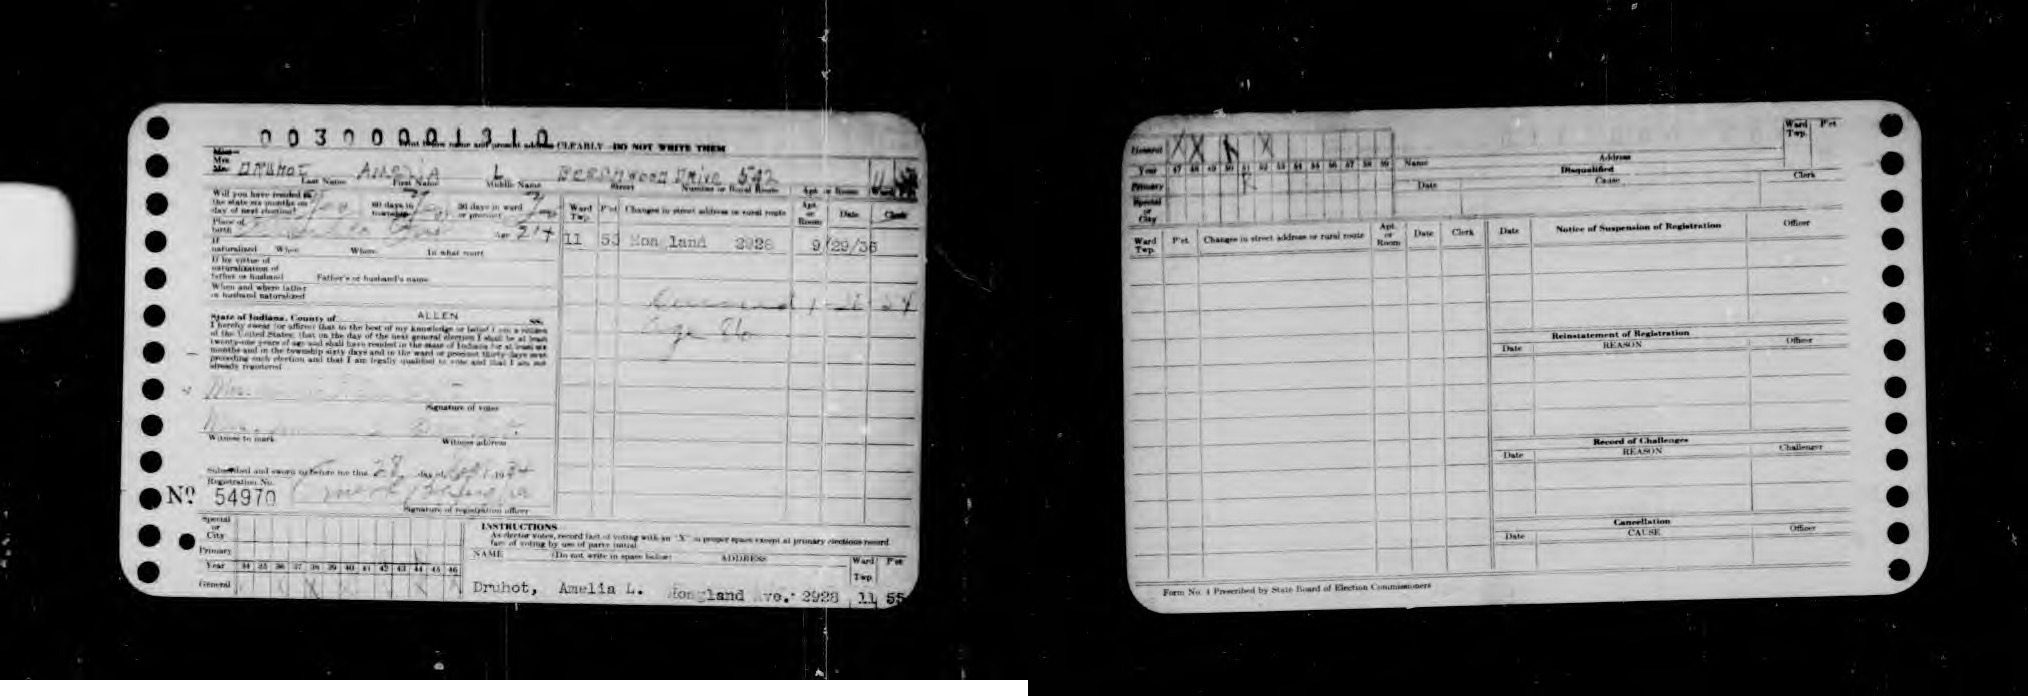 00300001310
Print below name and present address CLEARLY DO NOT WRITE THEM
Miss
Mrs. DRUHOT AMELIA L BEECHWOOD DRIVE 542 11
Mr.
Last Name First Name Middle Name Street Number or Rural Route Apt. or Room Ward
Will you have resided in
the state six months on 60 days in 30 days in ward
day of next election? township or precinct
Place of
birth Age 21+
If
naturalized When Where In what court
If by virtue of
naturalization of
father or husband Father's or husband's name
When and where father
or husband naturalized
State of Indiana, County of ALLEN ss.
I hereby swear (or affirm) that to the best of my knowledge or belief I am a citizen
of the United States; that on the day of the next general election I shall be at least
twenty-one years of age and shall have resided in the state of Indiana for at least six
months and in the township sixty days and in the ward or precinct thirty days next
preceding such election and that I am legally qualified to vote and that I am not
already registered
Mrs.
Signature of voter
Witness to mark Witness address
Subscribed and sworn to before me this 28 day of Sept 1934
Registration No.
Nº 54970
Signature of registration officer
Ward Twp. P'ct Changes in street address or rural route Apt. or Room Date Clerk
11 55 Hoagland 2928 9/29/36
Deceased 1-21-54
Age 86
Special
or
City
Primary
Year 34 35 36 37 38 39 40 41 42 43 44 45 46
General X X X
INSTRUCTIONS
As elector votes, record fact of voting with an "X" in proper space except at primary elections record
fact of voting by use of party initial
NAME (Do not write in space below) ADDRESS Ward Twp. P'ct
Druhot, Amelia L. Hoagland Ave. 2928 11 55
General X X X X
Year 47 48 49 50 51 52 53 54 55 56 57 58 59
Primary R
Special
or
City
Name Address Ward Twp. P'ct
Disqualified
Date Cause Clerk
Ward Twp. P'ct Changes in street address or rural route Apt. or Room Date Clerk
Date Notice of Suspension of Registration Officer
Reinstatement of Registration
Date REASON Officer
Record of Challenges
Date REASON Challenger
Cancellation
Date CAUSE Officer
Form No. 4 Prescribed by State Board of Election Commissioners